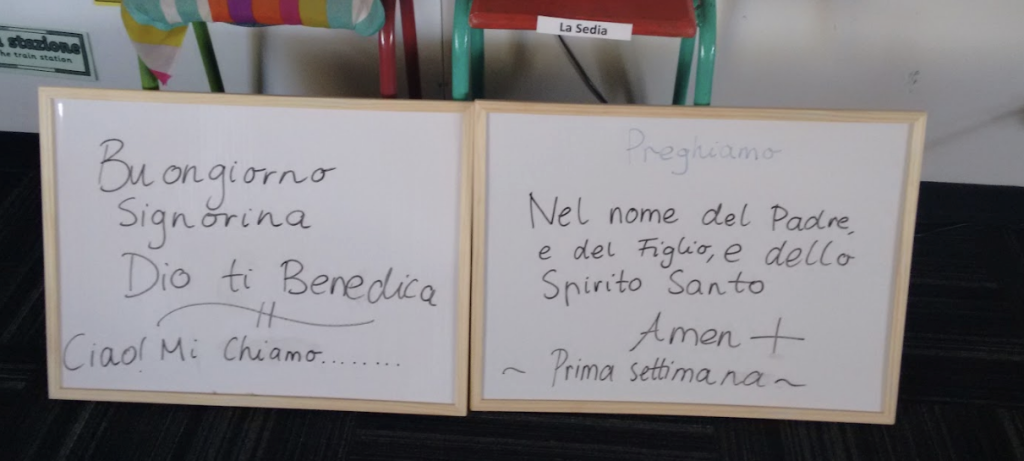 stazione
the train station
La Sedia
Buongiorno
Signorina
Dio ti Benedica
Ciao! Mi Chiamo........
Preghiamo
Nel nome del Padre,
e del Figlio, e dello
Spirito Santo
Amen +
~ Prima settimana ~